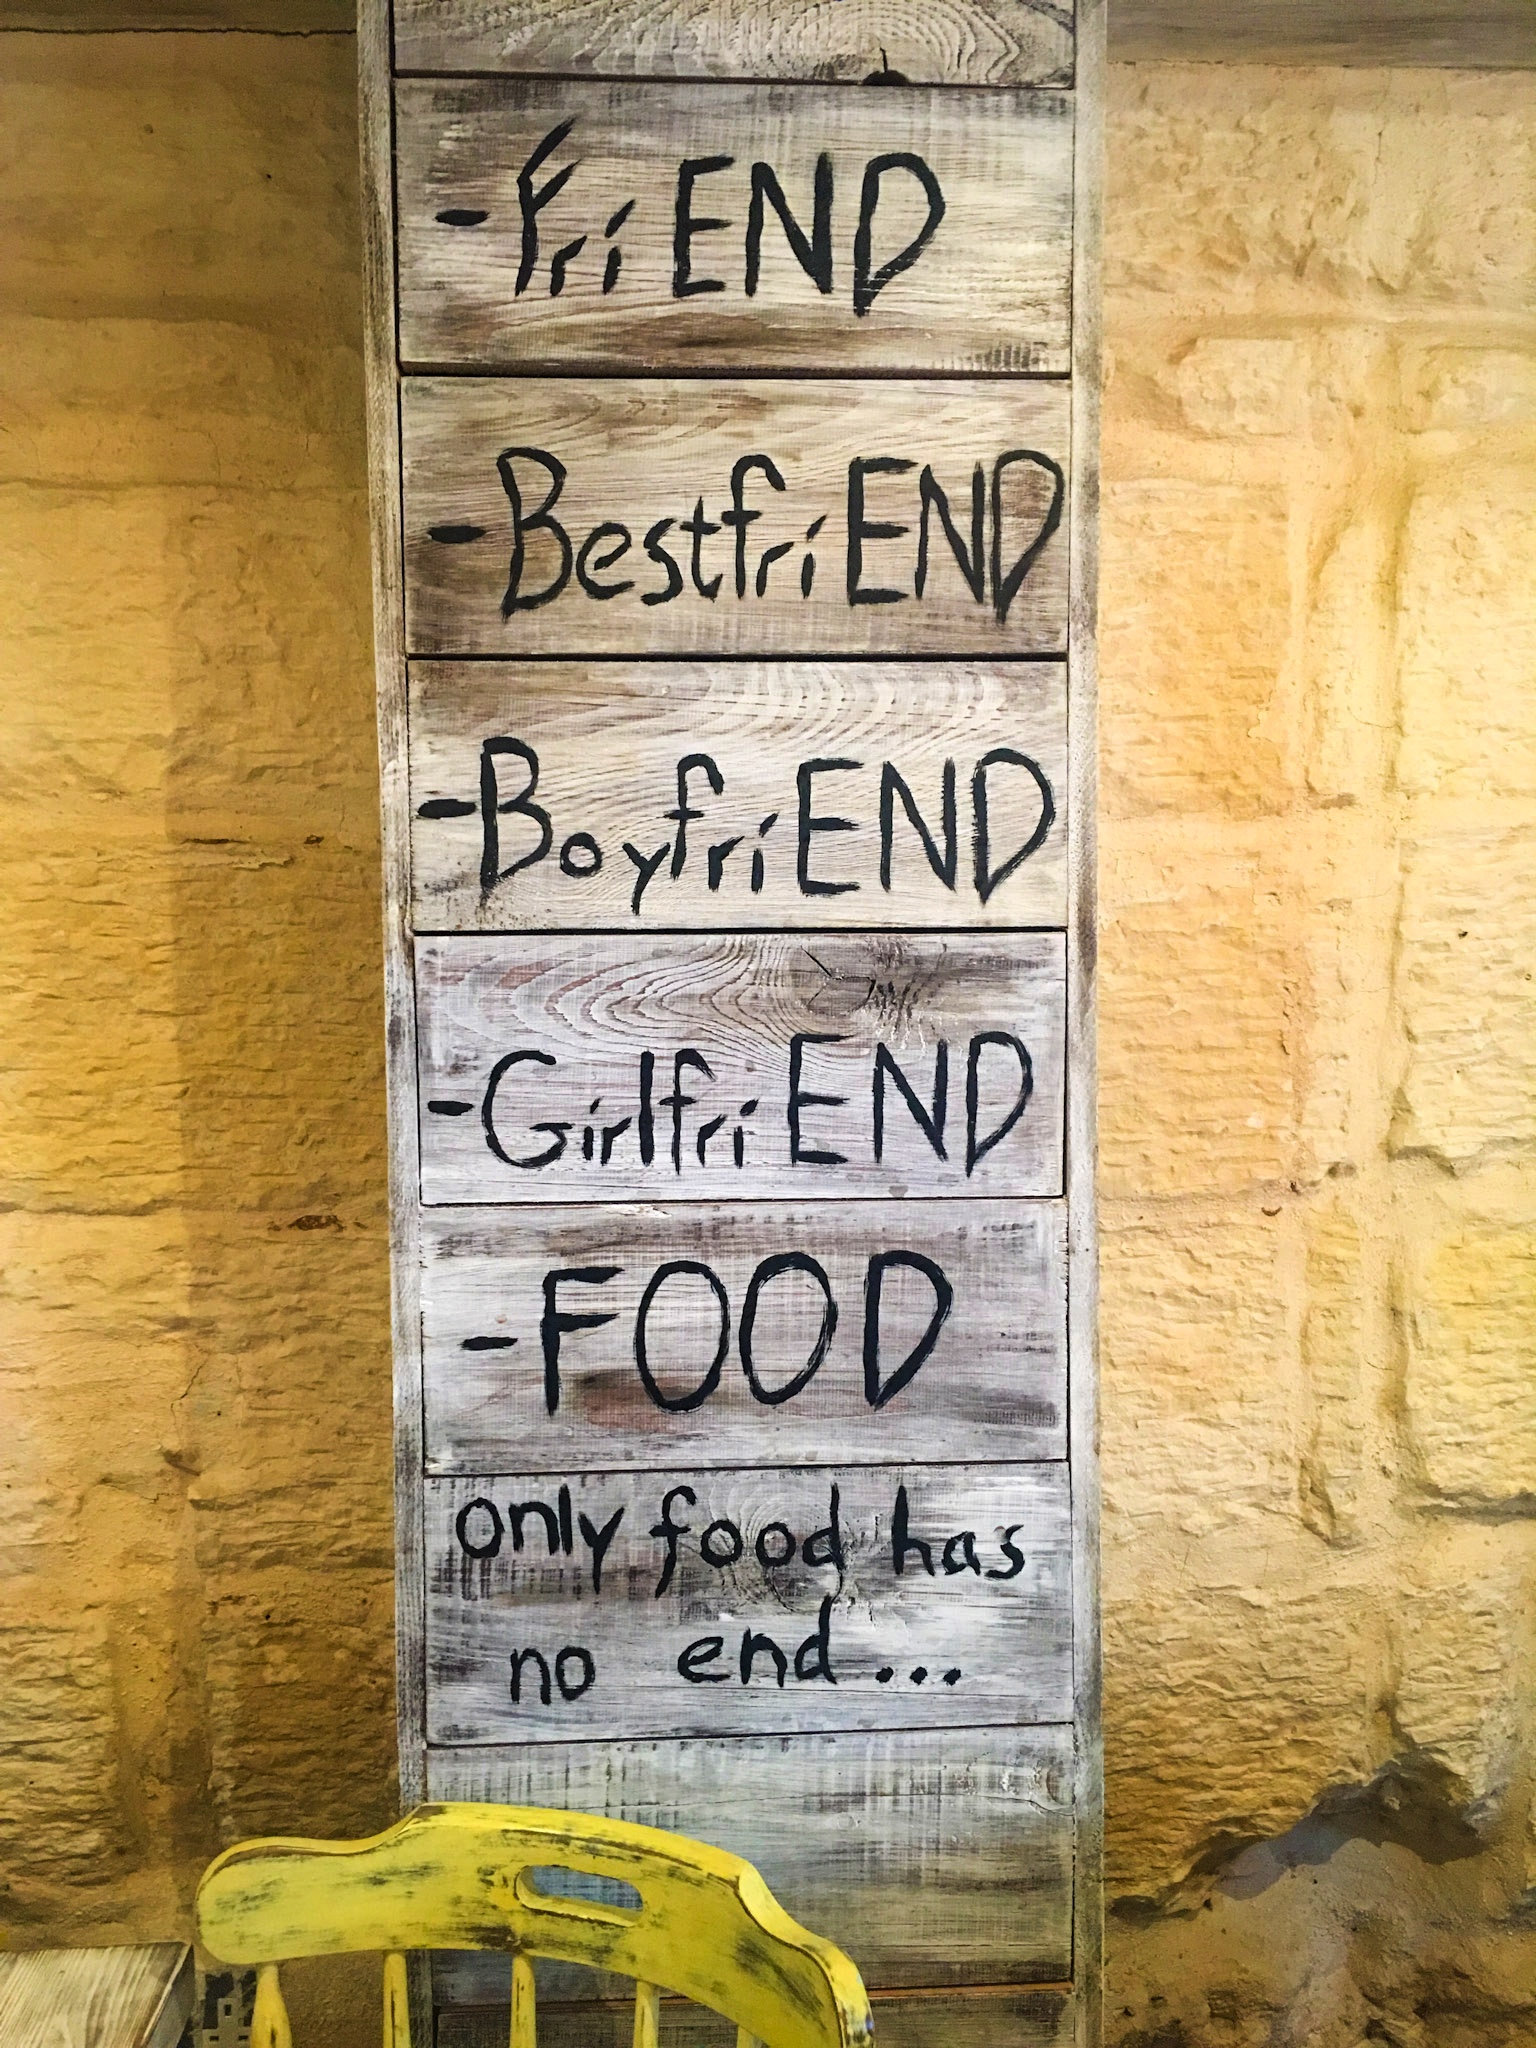 -FriEND
-BestfriEND
-BoyfriEND
-GirlfriEND
-FOOD
only food has
no end...